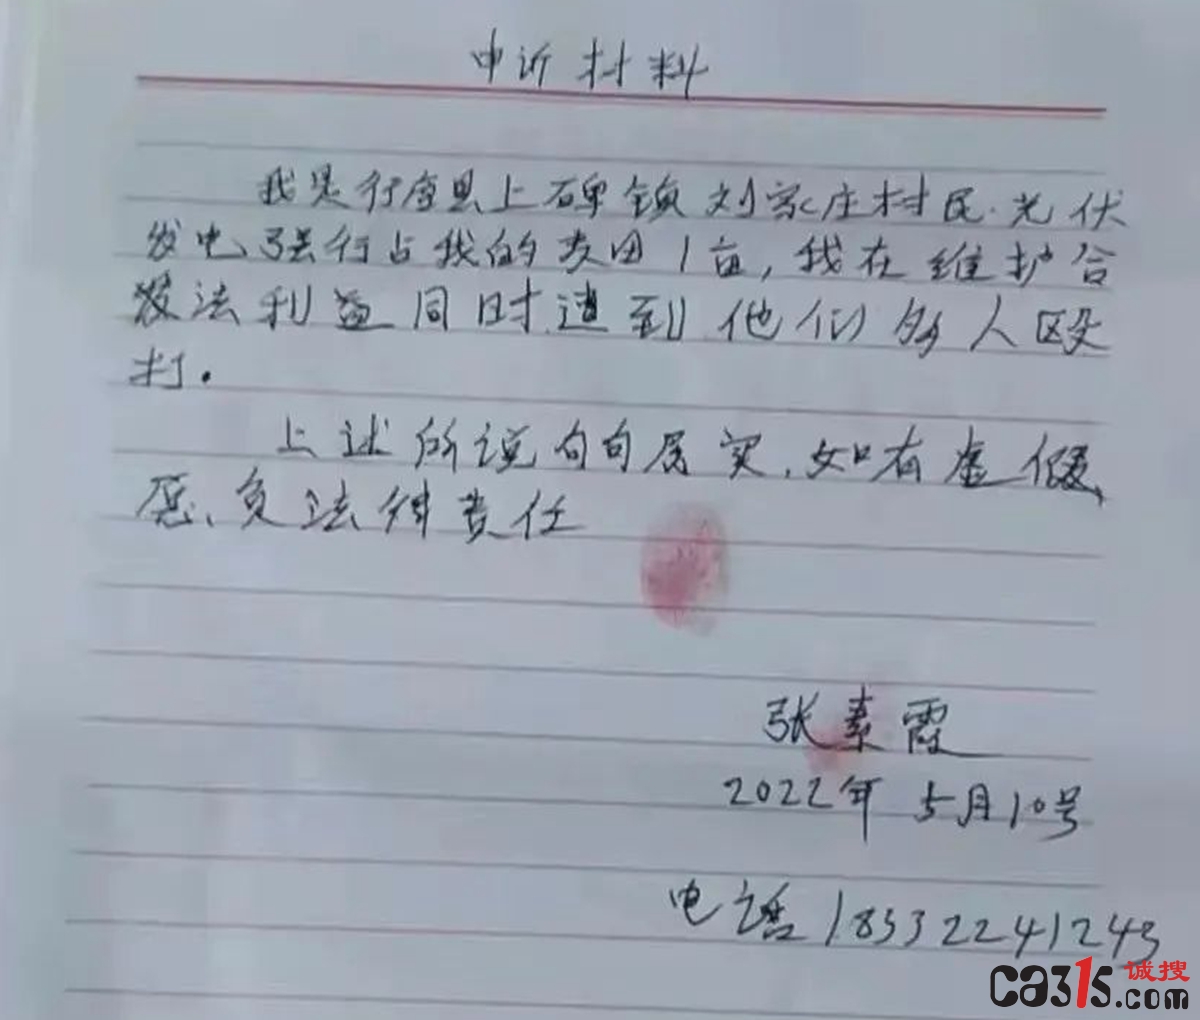 申诉材料
我是行唐县上碑镇刘家庄村民.光伏
发电强行占我的麦田1亩,我在维护合
法利益同时遭到他们多人殴
打.
上述所说句句属实.如有虚假、
愿、负法律责任
张素霞
2022年5月10号
电话18332241243
ca315诚搜.com